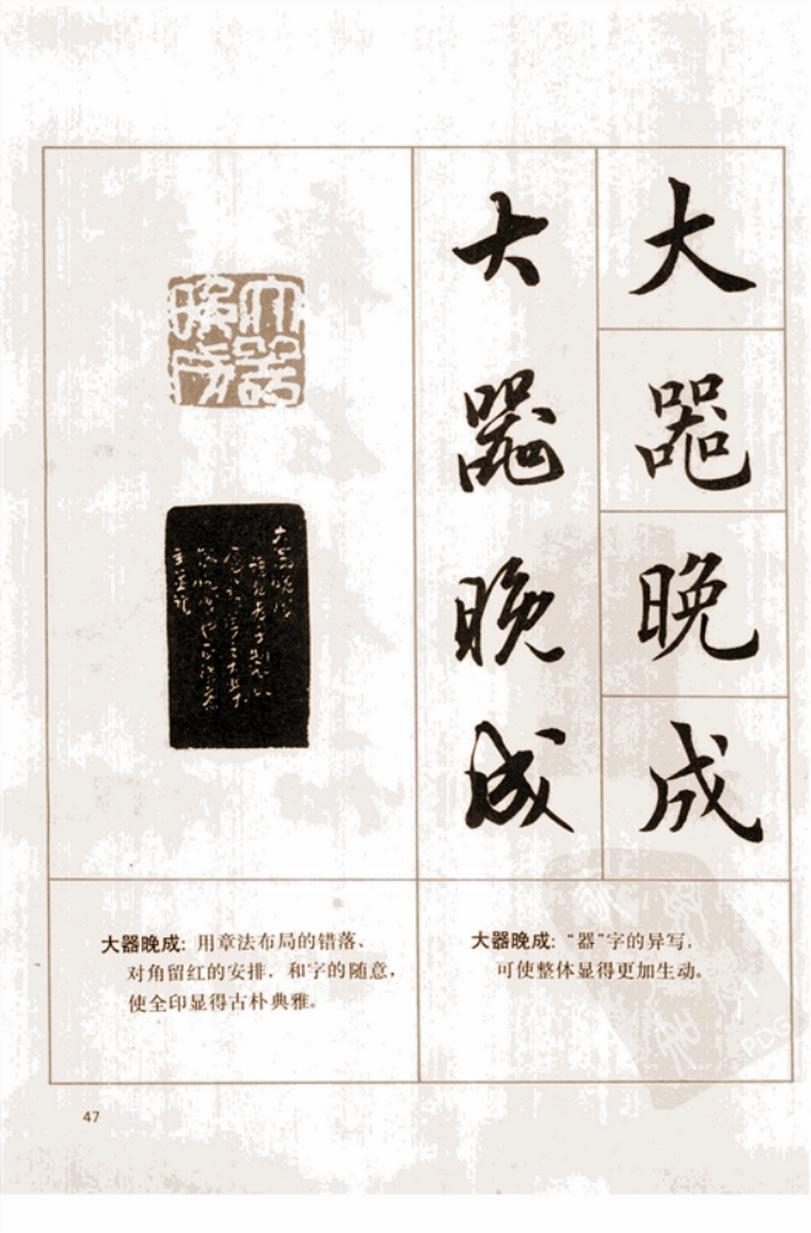 大
器
晚
成
大器晚成
大器晚成
大器晚成
大器晚成：用章法布局的错落、
对角留红的安排，和字的随意，
使全印显得古朴典雅。
大器晚成：“器”字的异写，
可使整体显得更加生动。
47
PDG